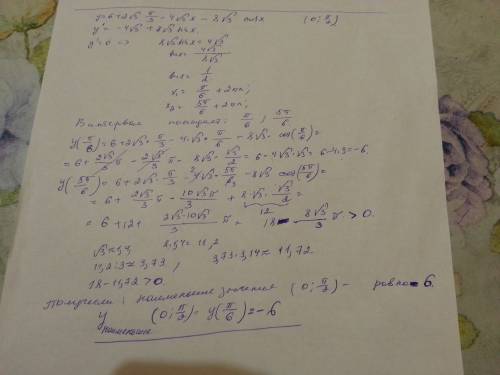 y=6+2√3·π/3−4√3x−8√3 cosx (0;π/2)
y'=−4√3+8√3sinx,
y'=0 => 8√3sinx=4√3
sinx=4√3/8√3
sinx=1/2
x₁=π/6+2πn;
x₂=5π/6+2πn;
В интервал попадает: π/6; 5π/6
y(π/6)=6+2√3·π/3−4√3·π/6−8√3·cos(π/6)=
=6+2√3/3π−2√3/3π−8√3·√3/2=6−4√3·√3=6−4·3=−6
y(5π/6)=6+2√3·π/3−4√3·5π/6−8√3 cos(5π/6)=
=6+2√3/3π−10√3π/3+8·√3·√3/2=
12
=6+12+2√3−10√3/3π=18−8√3/3π>0.
√3≈1,4 8·1,4=11,2
11,2:3≈3,73, 3,73·3,14≈11,72
18−11,72>0.
наименьшее значение (0;π/2)− равно−6.
y наименьшее (0;π/2)=y(π/6)=−6